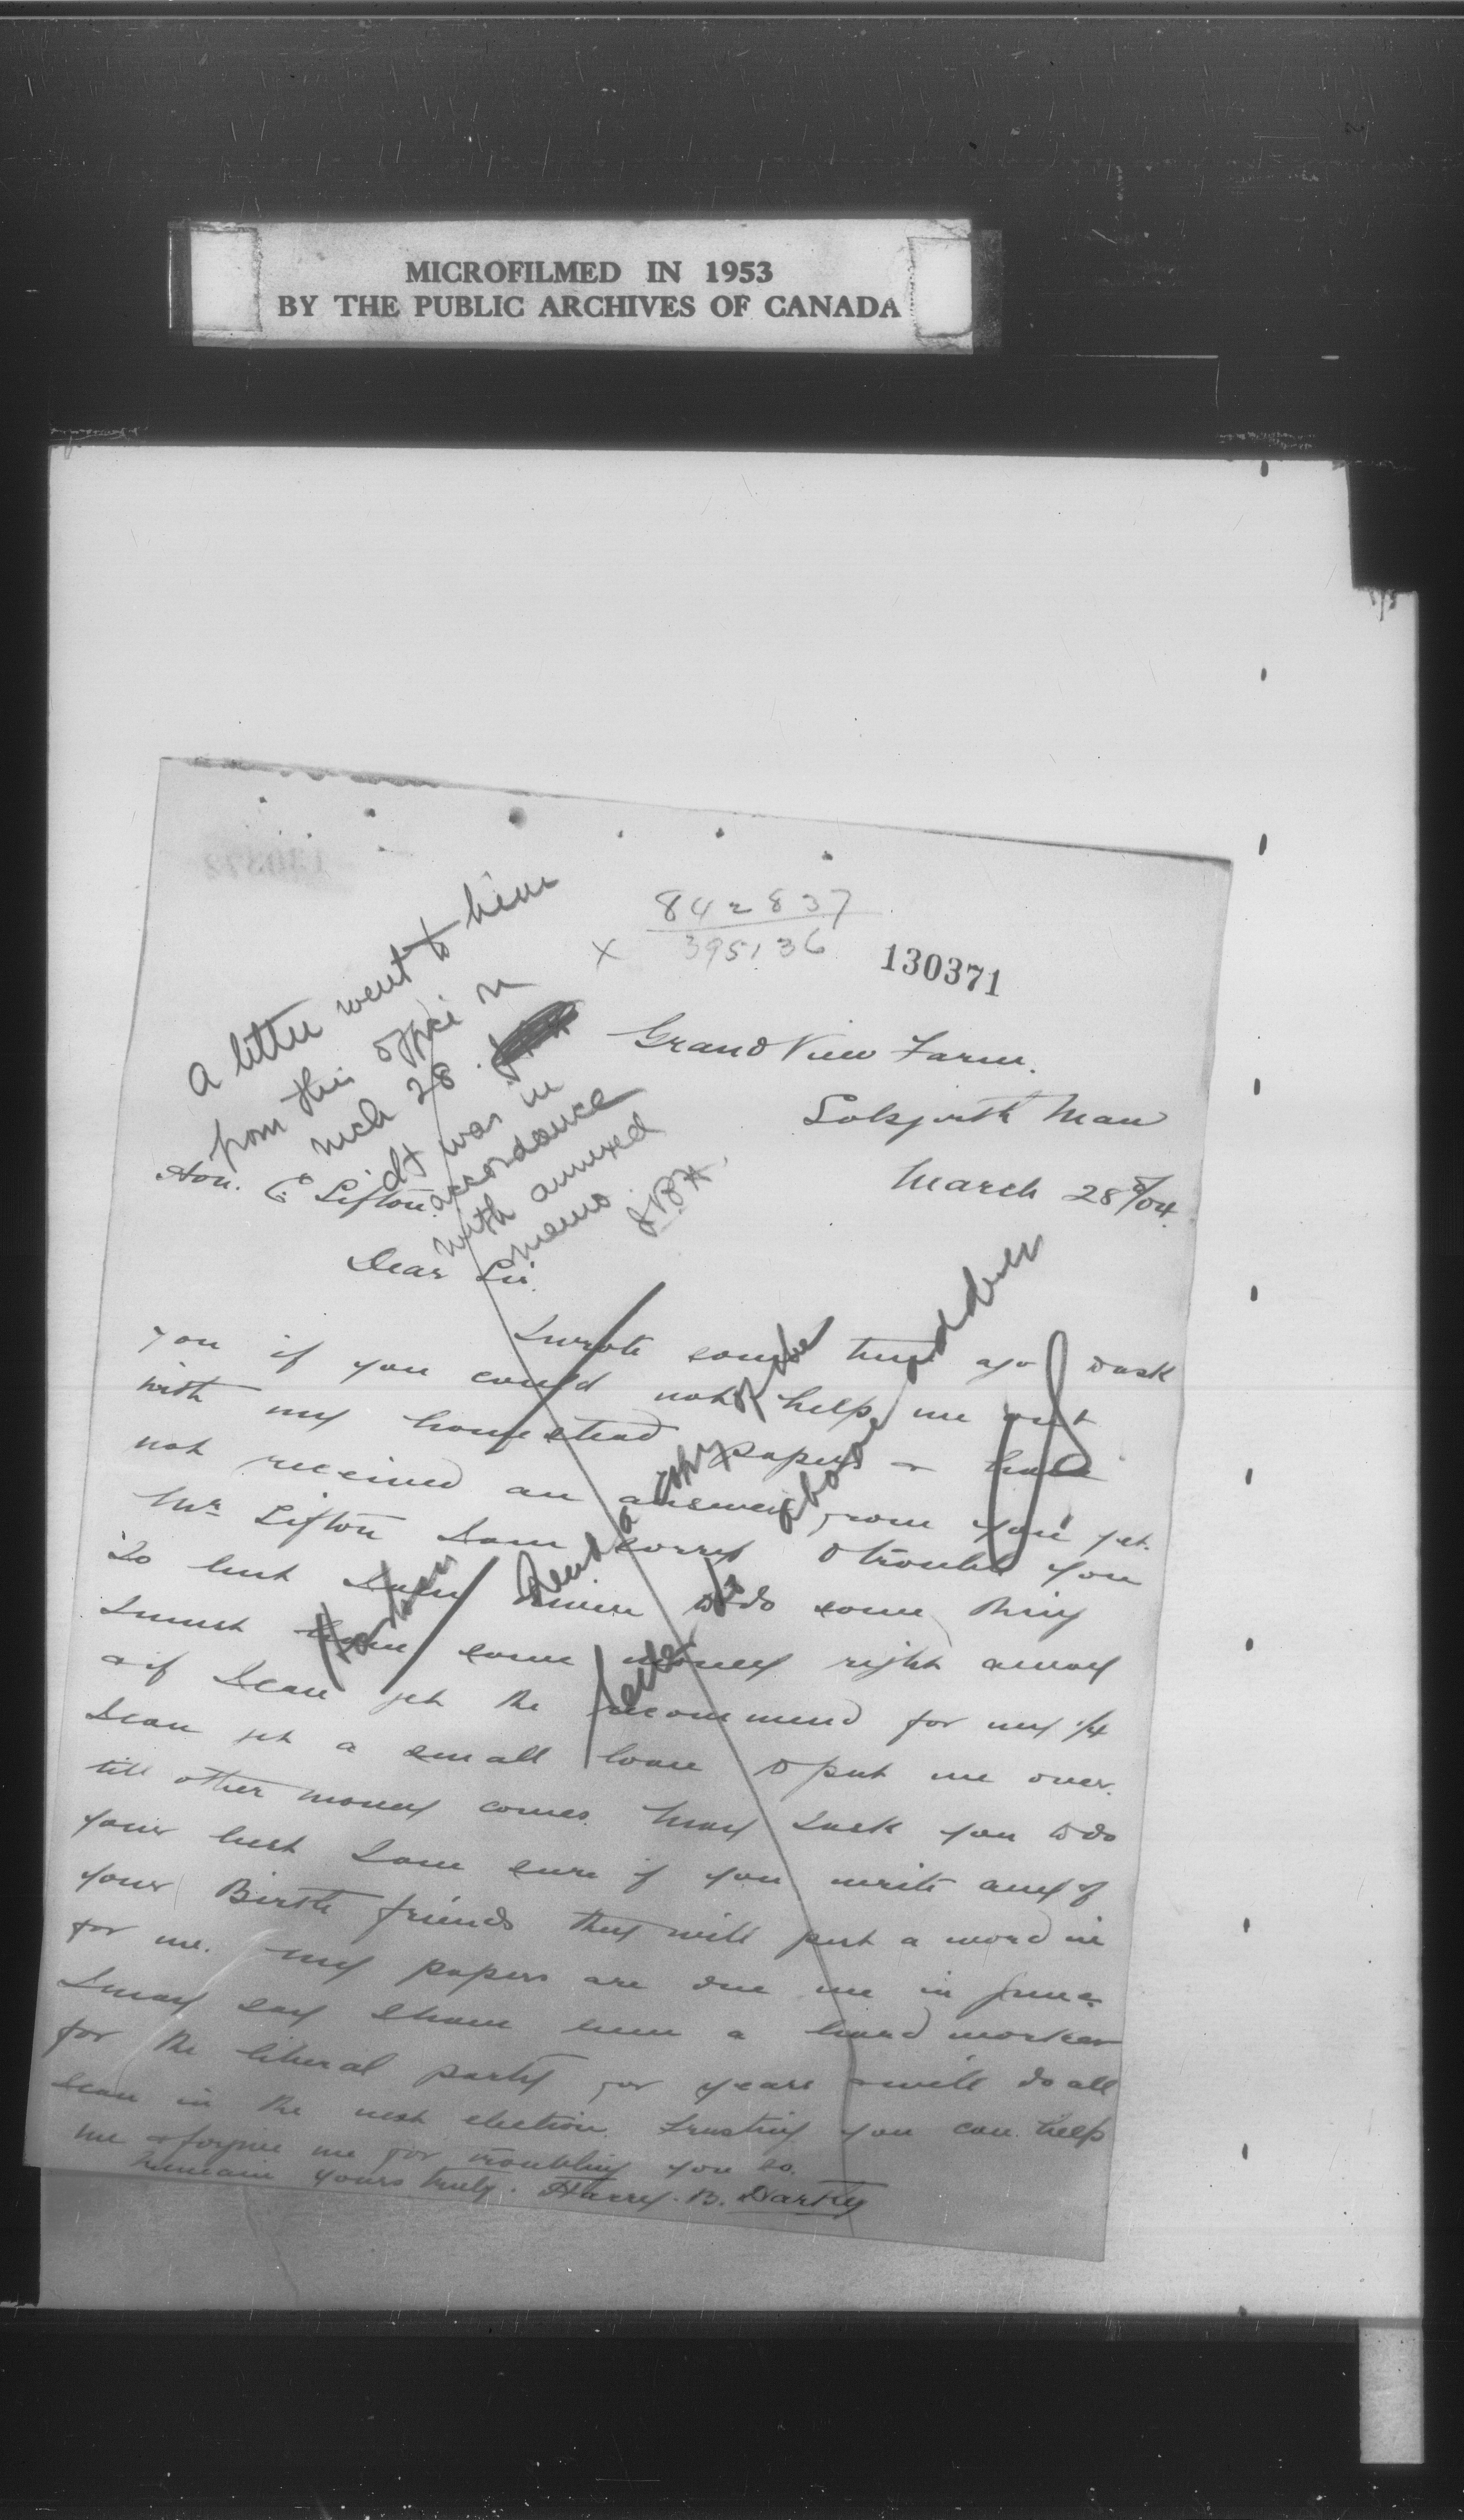 MICROFILMED IN 1953
BY THE PUBLIC ARCHIVES OF CANADA
842837
x 395136
130371
A letter went to him
from this office on
Mch 28.
It was in
accordance
with annexed
memo.
Grand View Farm.
Solsgirth Man
March 28th/04.
Hon. C. Sifton.
Dear Sir.
I wrote some time ago to ask
you if you could not help me out
with my homestead papers & have
not received an answer from you yet.
Mr. Sifton I am sorry to trouble you
so but I am driven to do some thing
I must have some money right away
& if I can get the recommend for my 1/4
I can get a small loan to put me over.
till other money comes. May I ask you to do
your best I am sure if you write any of
your Birtle friends they will put a word in
for me. My papers are due me in June.
I may say I have been a hard worker
for the liberal party for years & will do all
I can in the next election. Trusting you can help
me & forgive me for troubling you so.
I remain yours truly. Harry. B.
Send a copy of the
above